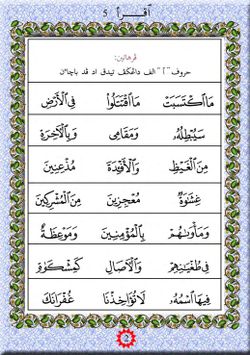 اقرأ 5
ڤرهاتين:
حروف "ا" الف دالمڬکڤ تيدق اد ڤد باچاٴن
مَا اكْتَسَبَتْ مَا اقْتَتَلُوا فِي الْأَرْضِ
سَيُبْطِلُهُ وَمَقَامِي وَبِالْآخِرَةِ
مِنَ الْغَيْظِ وَالْأَفْئِدَةَ مُذْعِنِينَ
غِشَاوَةٌ مُعْجِزِينَ مِنَ الْمُشْرِكِينَ
وَمَأْوَاهُمْ بِالْمُؤْمِنِينَ وَمَوْعِظَةً
فِي طُغْيَانِهِمْ وَالْآصَالِ كَمِشْكَاةٍ
فِيهَا اسْمُهُ لَا تُؤَاخِذْنَا غُفْرَانَكَ
2